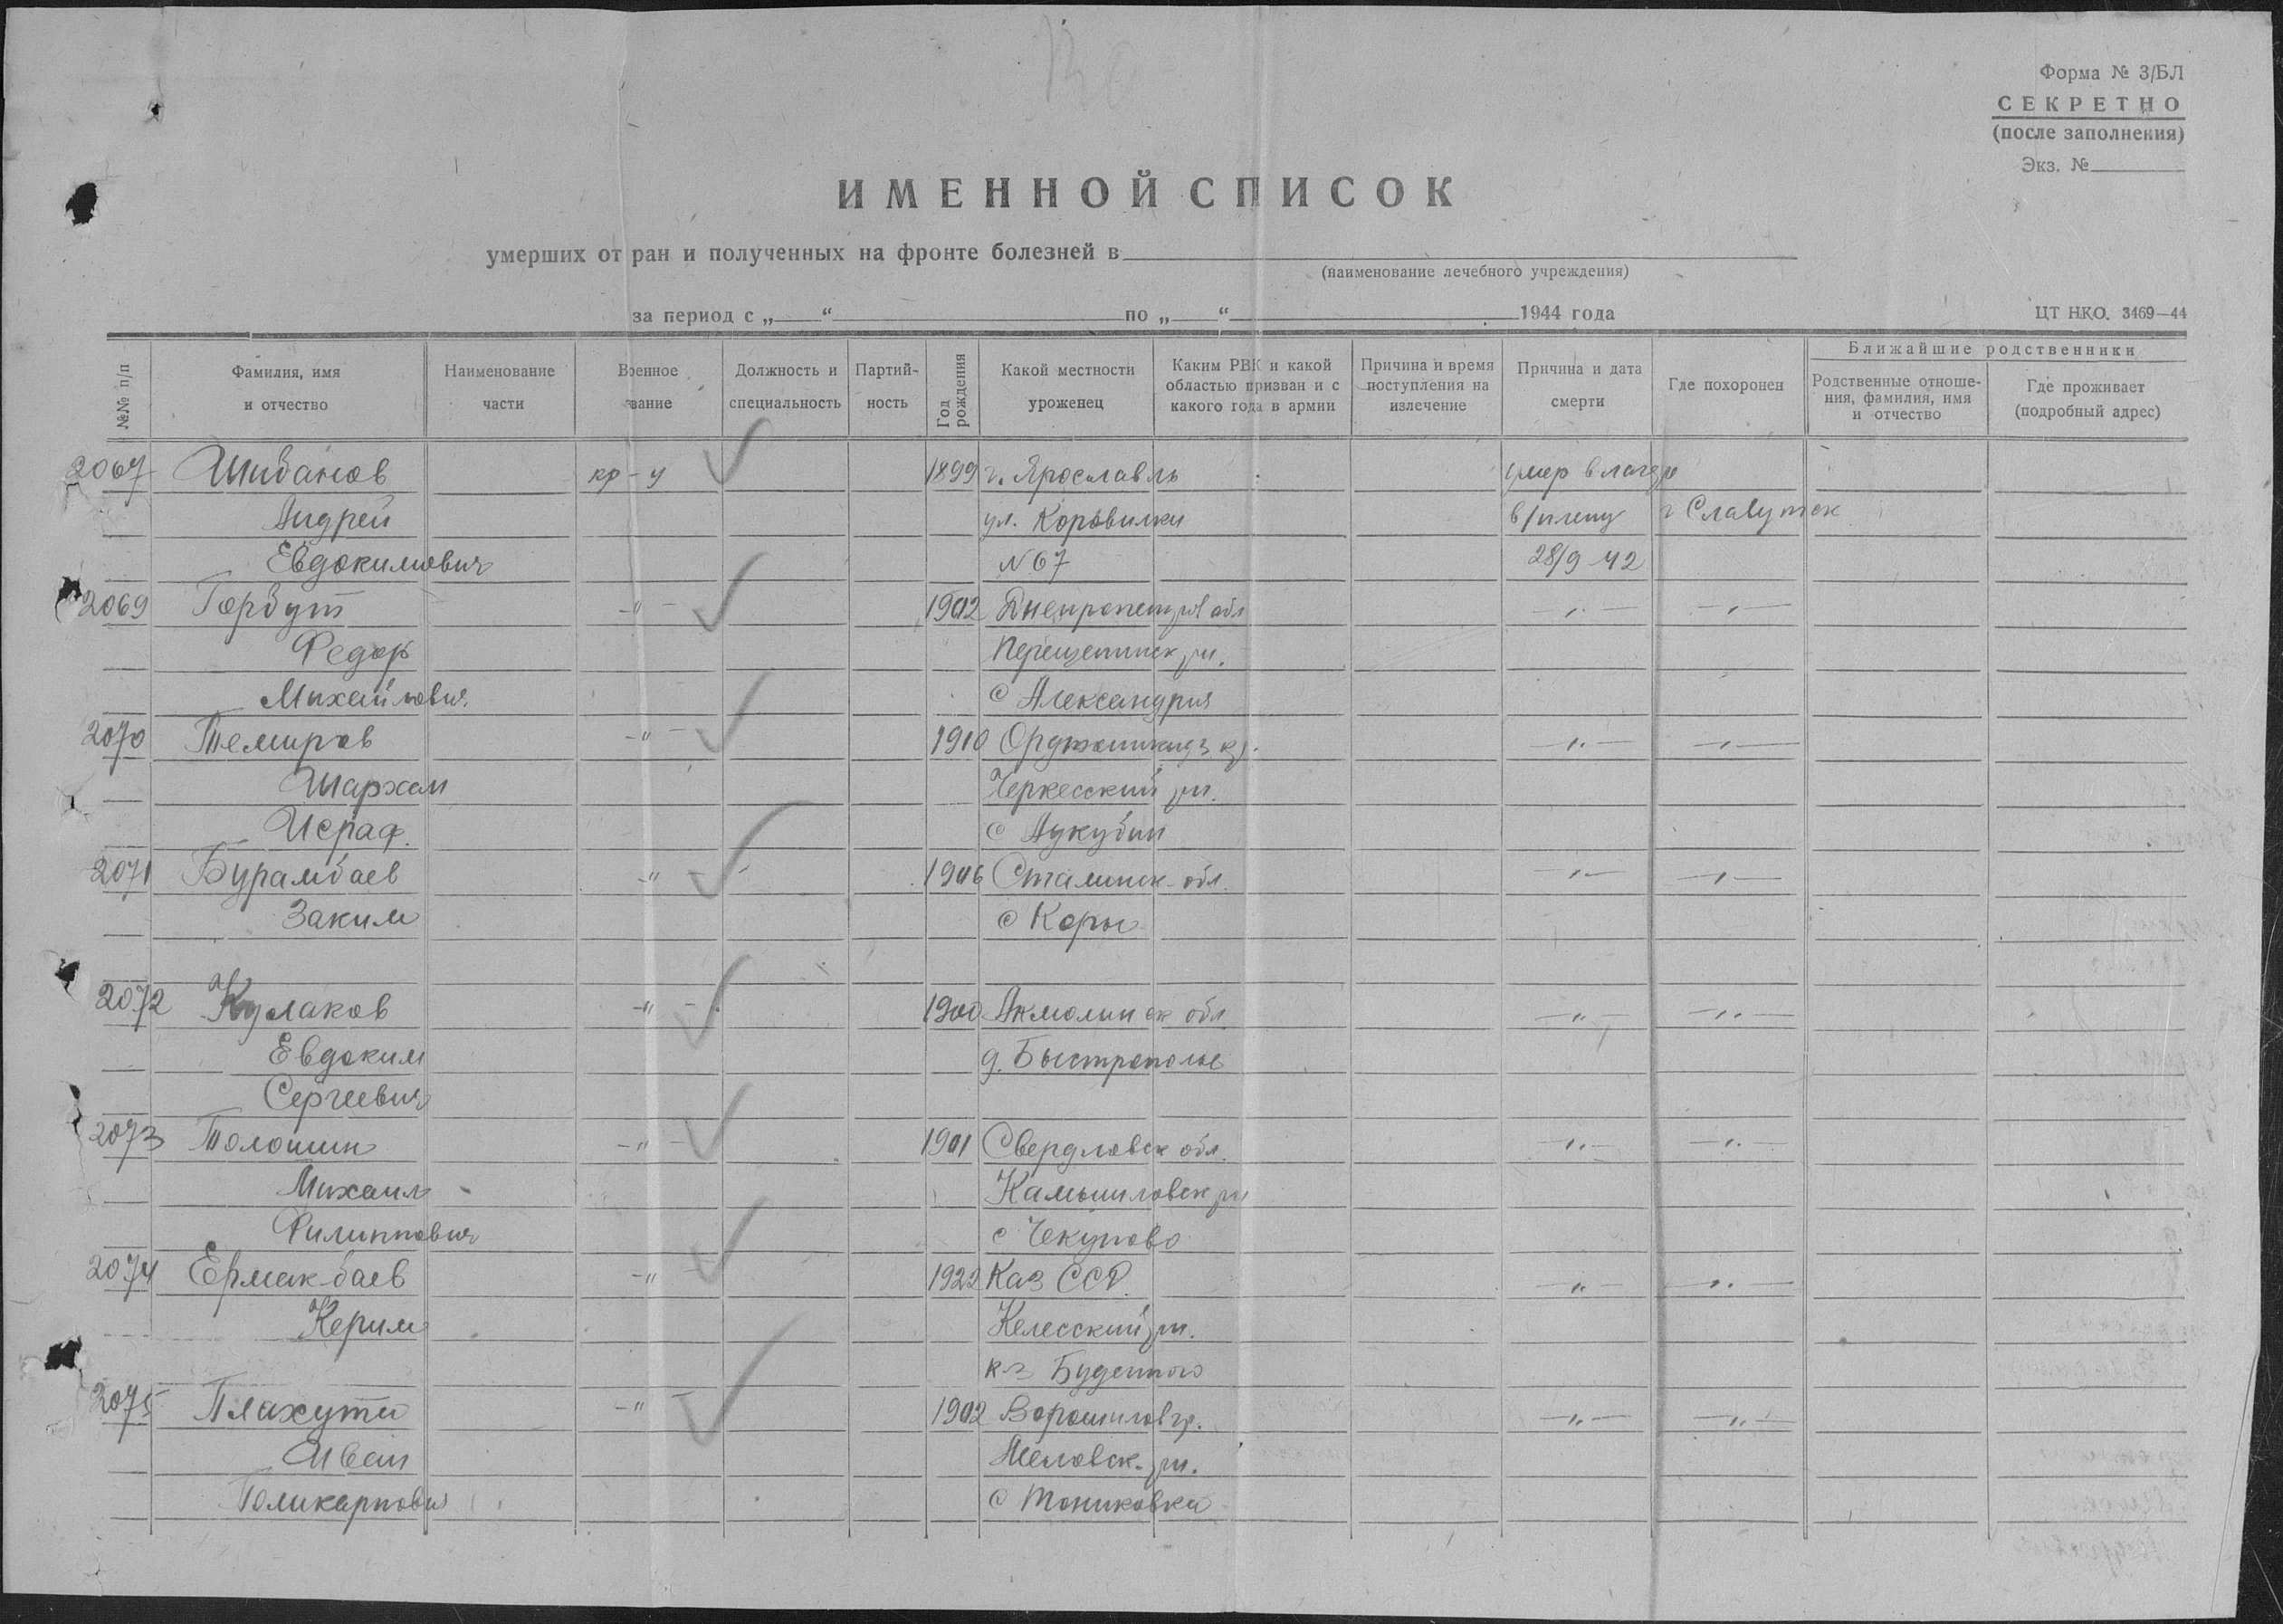 Форма № 3/БЛ
СЕКРЕТНО
(после заполнения)
Экз. №
ИМЕННОЙ СПИСОК
умерших от ран и полученных на фронте болезней в
(наименование лечебного учреждения)
за период с „ “ по „ “ 1944 года
ЦТ НКО. 3469—44
№№ п/п
Фамилия, имя и отчество
Наименование части
Военное звание
Должность и специальность
Партий-ность
Год рождения
Какой местности уроженец
Каким РВК и какой областью призван и с какого года в армии
Причина и время поступления на излечение
Причина и дата смерти
Где похоронен
Ближайшие родственники
Родственные отноше-ния, фамилия, имя и отчество
Где проживает (подробный адрес)
2067 Шибанов кр-ц 1899 г. Ярославль умер в лагере
Андрей ул. Коровники в/плену г Славутск
Евдокимович N 67 28/9 42
2069 Горбут -"- 1902 Днепропетров обл -"- -"-
Федор Перещепинск рн.
Михайлович с Александрия
2070 Темиров -"- 1910 Орджоникидз кр. -"- -"-
Шархан Черкесский рн.
Исраф. с
2071 Бурамбаев -"- 1906 Сталинск обл. -"- -"-
Заким с Коры
2072 Кулаков -"- 1900 Акмолинск обл. -"- -"-
Евдоким д. Быстрополье
Сергеевич
2073 Толошин -"- 1901 Свердловск обл. -"- -"-
Михаил Камышловск рн
Филиппович с
2074 Ермак-баев -"- 1922 Каз ССР. -"- -"-
Керим Келесский рн.
к-з Буденого
2075 Плахути -"- 1902 Ворошиловгр. -"- -"-
Иван Меловск. рн.
Поликарпович с Тониковка